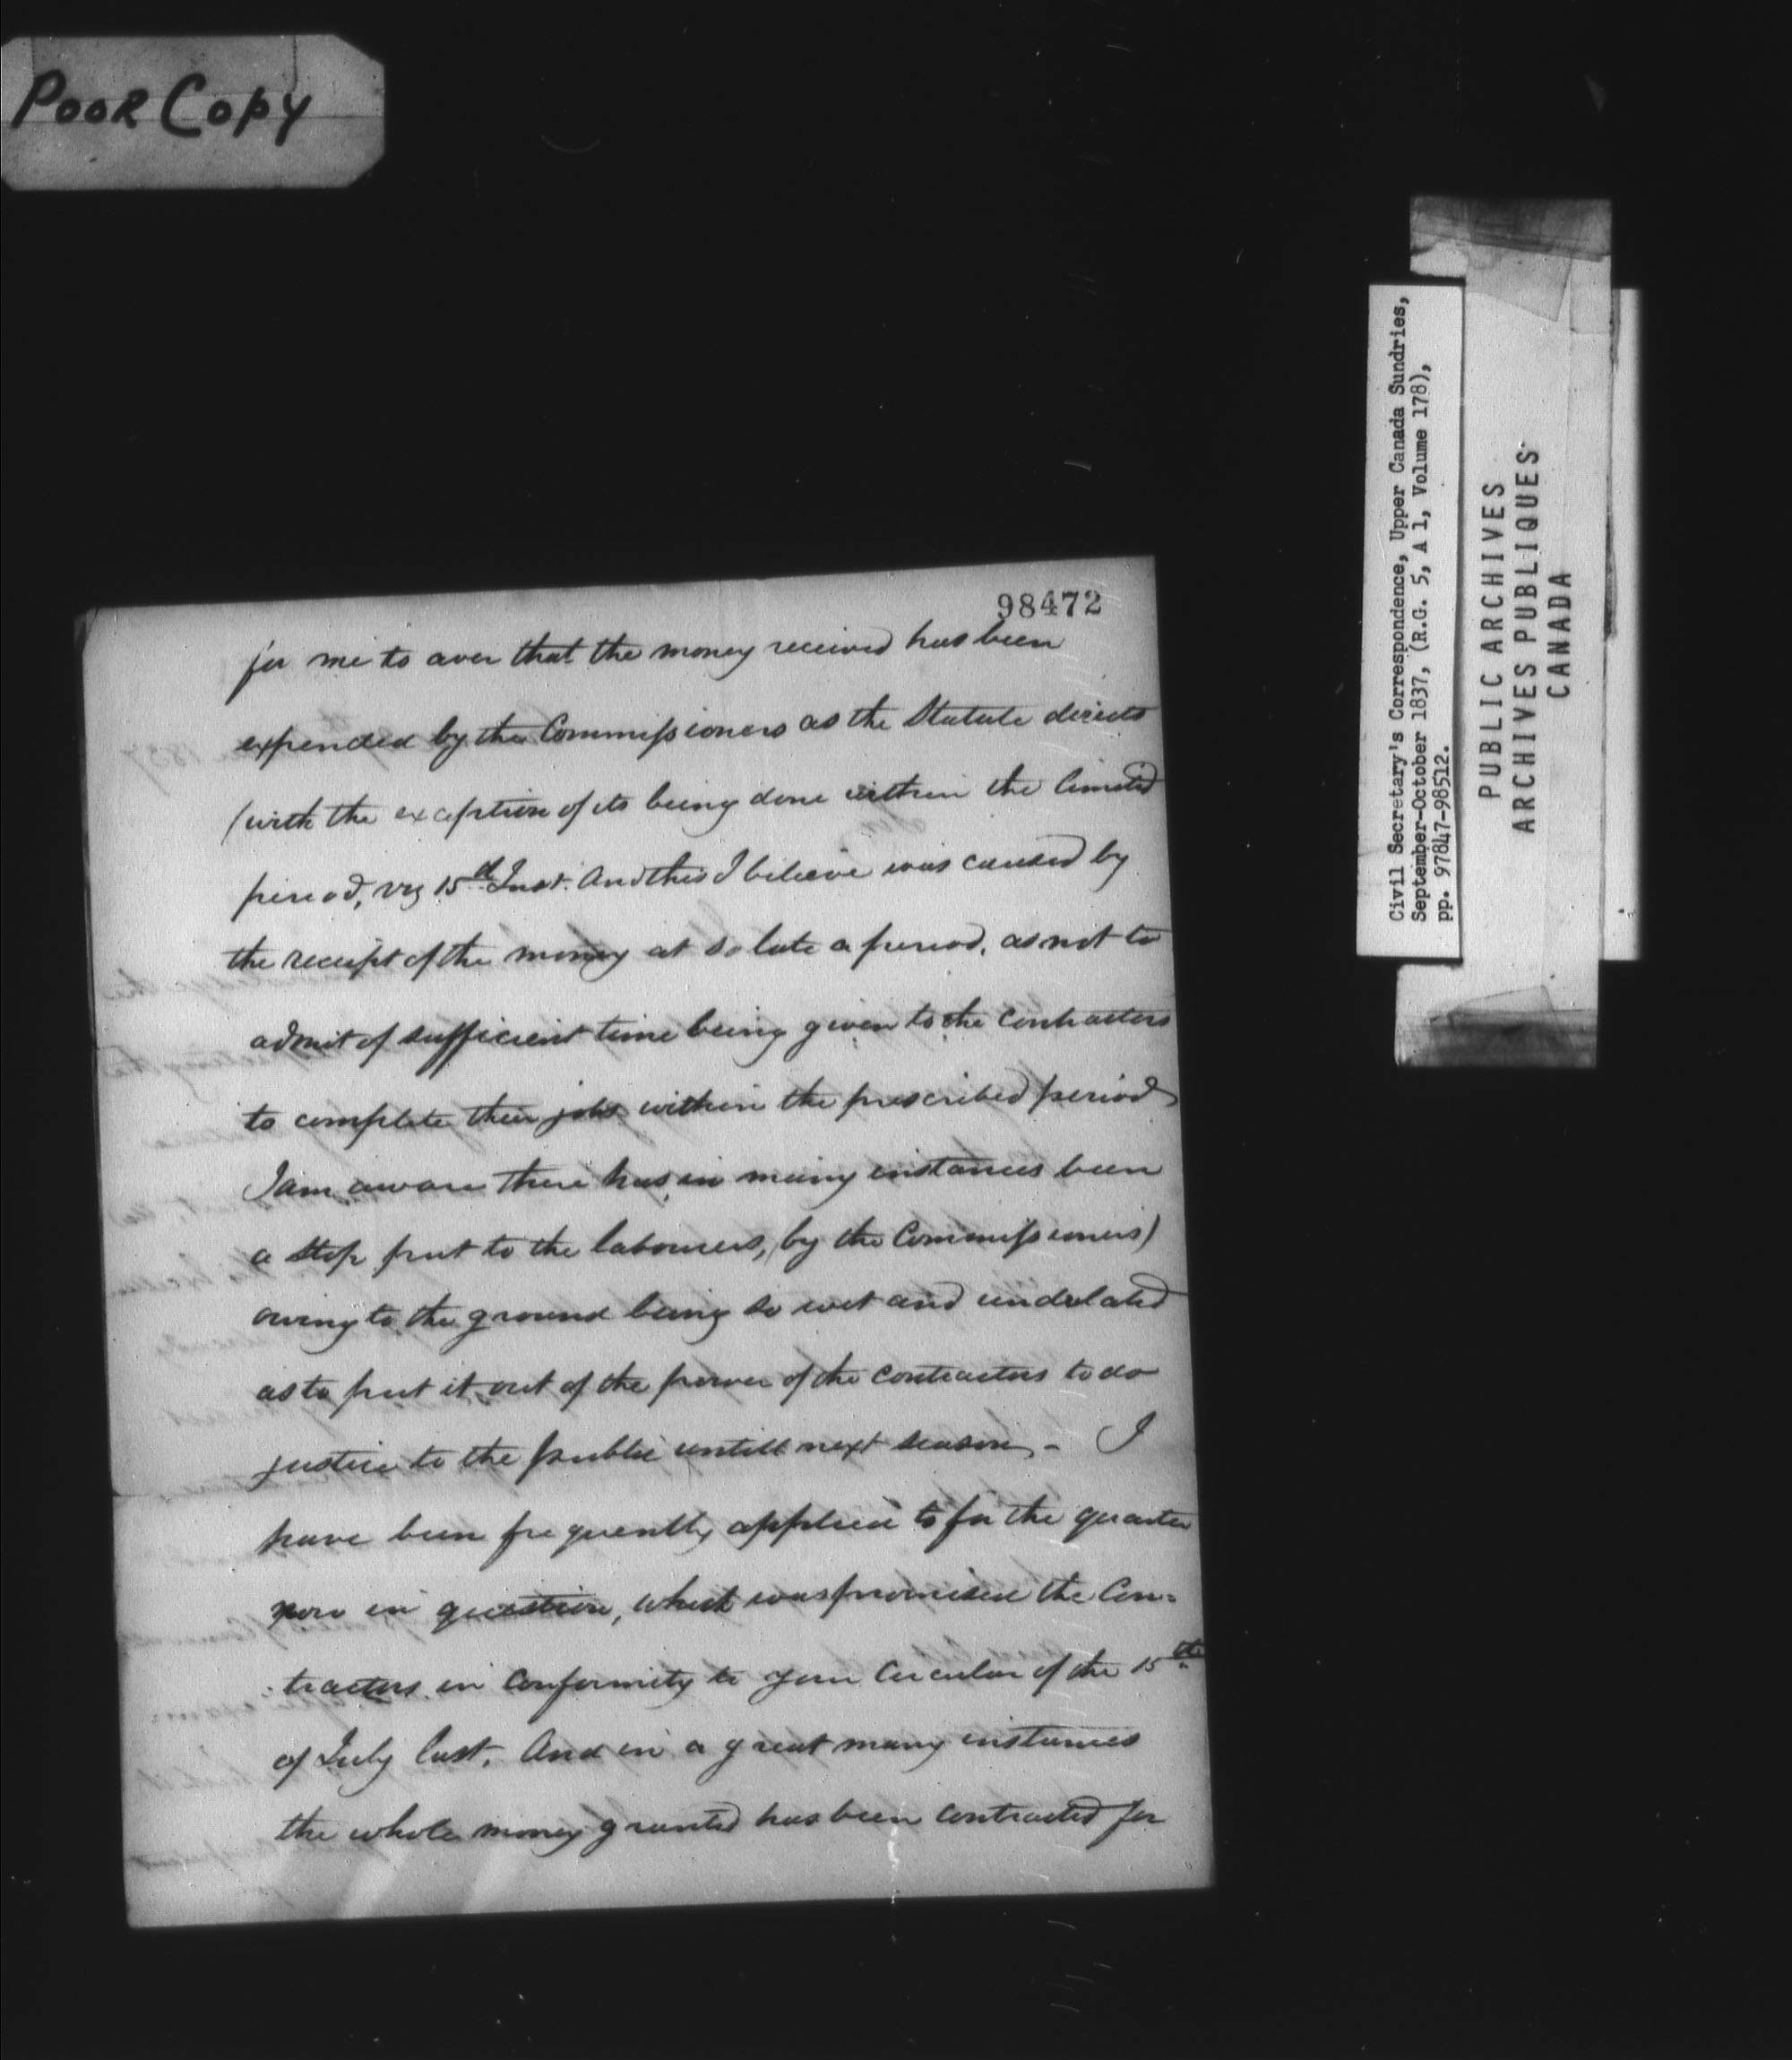 Poor Copy
98472
for me to aver that the money received has been
expended by the Commissioners as the Statute directs
(with the exception of its being done within the limited
period, viz 15th Inst. And this I believe was caused by
the receipt of the money at so late a period, as not to
admit of sufficient time being given to the Contractors
to complete their jobs within the prescribed period
I am aware there has in many instances been
a stop put to the labourers, (by the Commissioners)
owing to the ground being so wet and
as to put it out of the power of the Contractors to do
justice to the public untill next season, - I
have been frequently applied to for the quarter
now in question, which was promised the Con=
tractors in Conformity to your Circular of the 15th
of July last. And in a great many instances
the whole money granted has been Contracted for
Civil Secretary's Correspondence, Upper Canada Sundries,
September-October 1837, (R.G. 5, A 1, Volume 178),
pp. 97847-98512.
PUBLIC ARCHIVES
ARCHIVES PUBLIQUES
CANADA